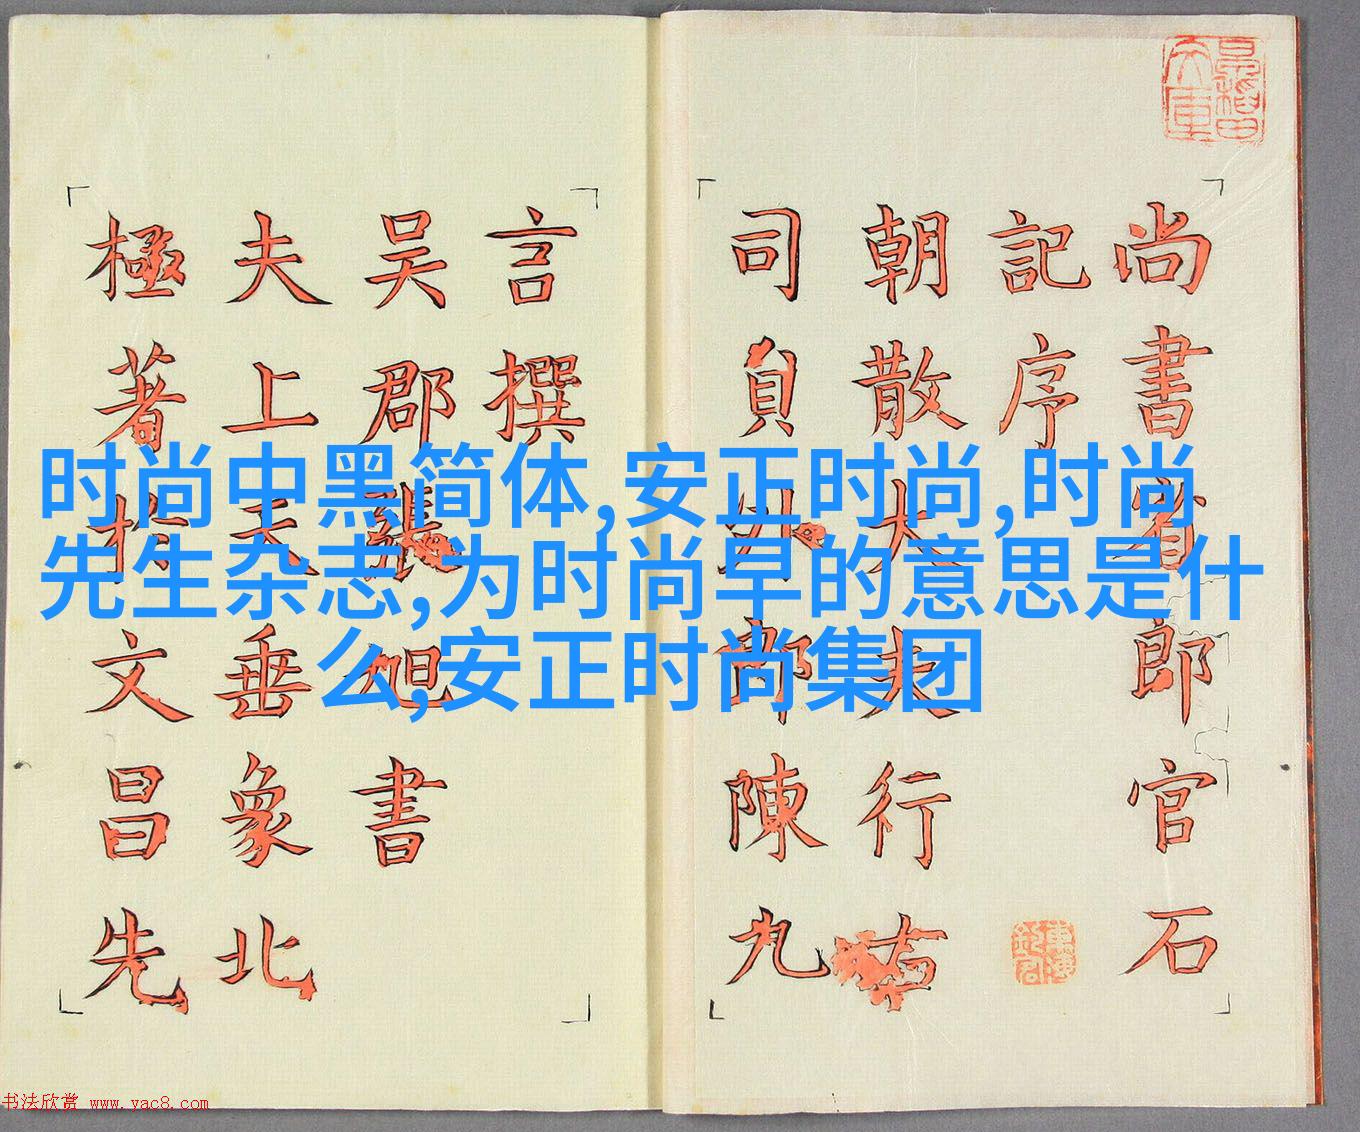 尚書省郎官石
記序
朝散大夫行右
司員外郎陳九
言撰
吴郡張旭書
夫上天垂象北
極著於文昌先
时尚中黑简体,安正时尚,时尚
先生杂志,为时尚早的意思是什
么,安正时尚集团
书法欣赏 www.yac8.com